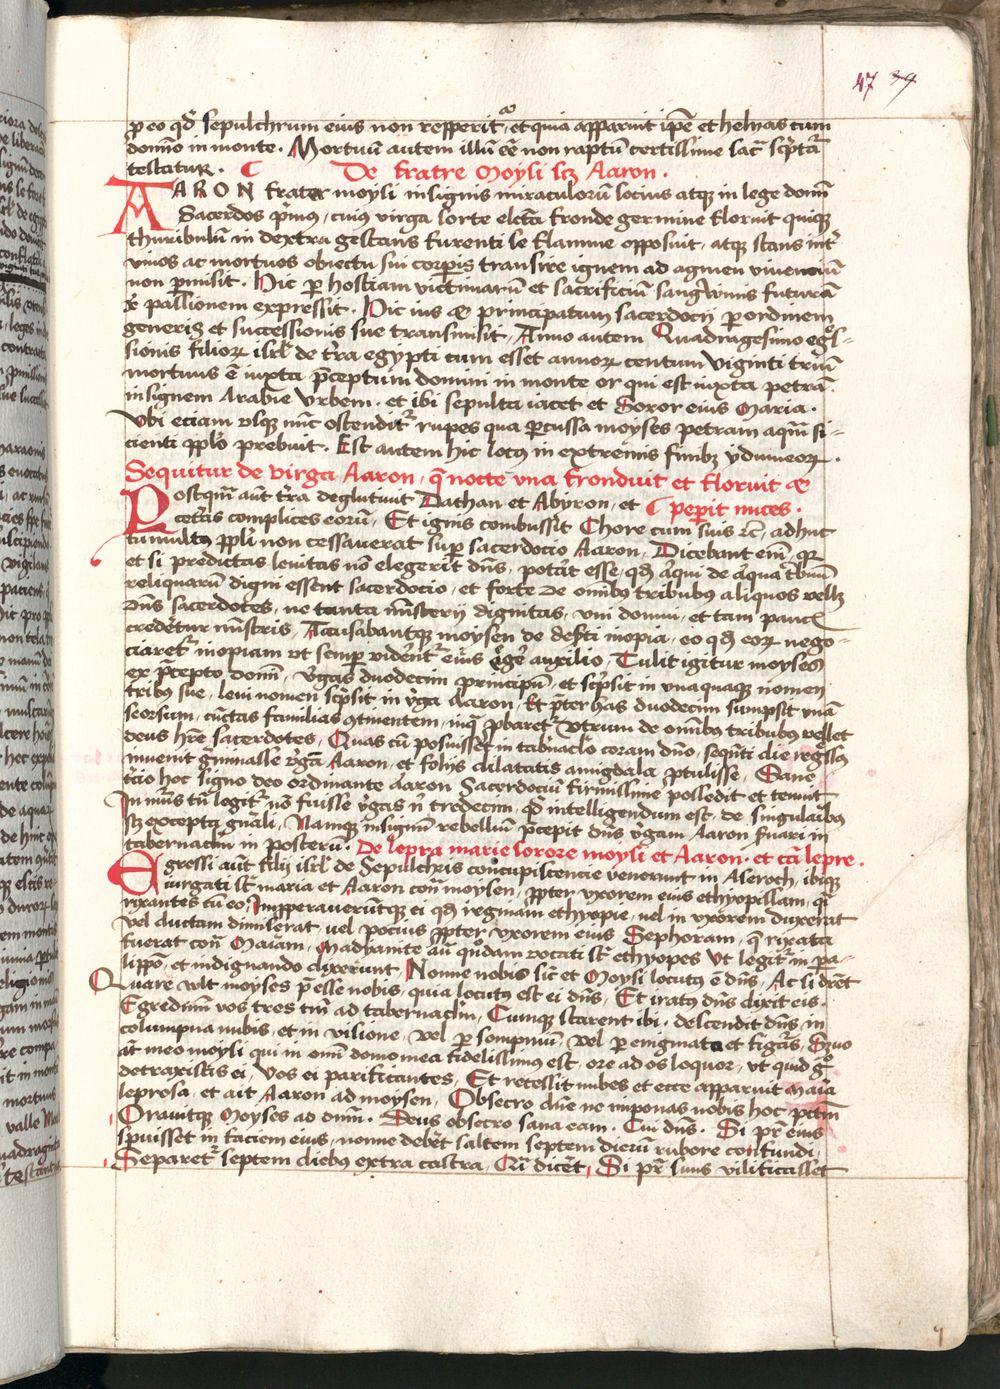 47 39
p eo qd sepulchrum eius non repperitr, et quia apparuit ipe et helyas cum
domino in monte. Mortuu autem illu ee non raptu certissime sac scripta
testatur. De fratre Moysi scz Aaron.
AARON frater moysi insignis miraculoru socius atq in lege domini
Sacerdos pmus, cuius virga sorte electa fronde germine floruit quique
thuribulu in dextra gestans furenti se flamme opposuit, atq stans intr
viuos ac mortuos obiectu sui corpis transire ignem ad agmen viuenciu
non pmisit. Hic per hostiam victimaru et sacrificiu sanguinis futura
xpi passionem expressit. Hic ius & principatum sacerdocii per ordinem
generis et successionis sue transmisit, Anno autem Quadragesimo egres-
sionis filiorz isrl de tra egypti cum esset annorz centum viginti triu
mortuus e iuxta pceptum domini in monte or qui est iuxta petra
insignem Arabie vrbem. et ibi sepulta iacet et Soror eius Maria.
Vbi eciam vsq nuc ostenditr rupes qua percussa moyses petram aqua si-
cienti pplo prebuit. Est autem hic locus in extremis finibz ydumeorz.
Sequitur de virga Aaron, q nocte vna fronduit et floruit &
Postqm aut tra deglutiuit Dathan et Abyron, et peperit nuces.
ceteros complices eoru, Et ignis combussit Chore cum suis etc, adhuc
tumultus ppli non cessauerat sup sacerdocio Aaron, Dicebant eni, qr
et si predictas leuitas no elegerit dns, poterat esse, qd aliqui de aliqua tribuu
reliquaru digni essent sacerdocio, et forte de omibus tribubus aliquos vellz
dns sacerdotes, ne tanta misterii dignitas, vni domui, et tam paucis
crederetur ministris, Accusabantque moysen de defcti inopia, eo qd eorz nego-
ciaretr inopiam vt semper viderentr eius egere auxilio, Tulit igitur moyses
ex pcepto domini, virgas duodecim principum, et scripsit in vnaquaque nomen
tribus sue, leui nomen scripsit in virga Aaron, Et preter has duodecim sumpsit vna
seorsum, cunctas familias continentem, in qua probaretr vtrum de omibus tribubus vellet
deus here sacerdotes, Quas cu posuisset in tabernaclo coram dno, sequenti die regressus
inuenit germinasse virga Aaron, et foliis dilatatis amigdala protulisse, Sane
tcio hoc signo deo ordinante Aaron Sacerdociu firmissime possedit et tenuit
In nuis tn legitr no fuisse virgas ni tredecim, qd intelligendum est, de singularibus
scz excepta generali, Namque in signum rebelliu precepit dns virgam Aaron seruari in
tabernaclm in posteru. De lepra marie sorore moysi et Aaron. et ca lepre.
Egressi aut filii isrl de Sepulchris concupiscencie venerunt in Aseroch, ibique
iurgati st maria et Aaron contra moysen, propter vxorem eius ethyopissam, qr
rixantes cu eo, Impperaueruntque ei qd reginam ethyopie, uel in vxorem duxerat
vel ductam dimiserat, uel pocius propter vxorem eius Sephoram, q rixata
fuerat contra Mariam, Madyanite aut quodam vocati st ethyopes Vt legitr in pa-
lippo, et indignando dixerunt Nonne nobis sic et Moysi locutus e dns, Ac si diceret
Quare vult moyses pre esse nobis, quia locutus est ei dns, Et iratus dns dixit eis.
Egredimini vos tres tm ad tabernaclm, Cumque starent ibi. descendit dns in
columpna nubis, et in visione, vel per sompnium, vel per enigmata et figuras, Quo
at meo moysi qui in omni domo mea fidelissimus est, ore ad os loquor, vt quid g
detraxistis ei, Vos ei parificantes, Et recessit nubes et ecce apparuit maria
leprosa, et ait Aaron ad moysen, Obsecro dne ne imponas nobis hoc pctm
Orauitque Moyses ad dnm. Deus obsecro sana eam. Cui dns. Si pr eius
spuisset in faciem eius, nonne deberet saltem septem dieru rubore confundi,
Separetr septem diebus extra castra, Qsi diceret, Si pr suus vilificasset